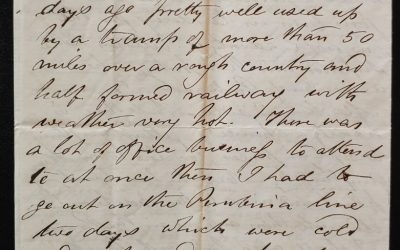 days ago pretty well used up
by a tramp of more than 50
miles over a rough country and
half formed railway with
weather very hot. There was
a lot of office business to attend
to at once then I had to
go out on the Pembina line
two days which were cold